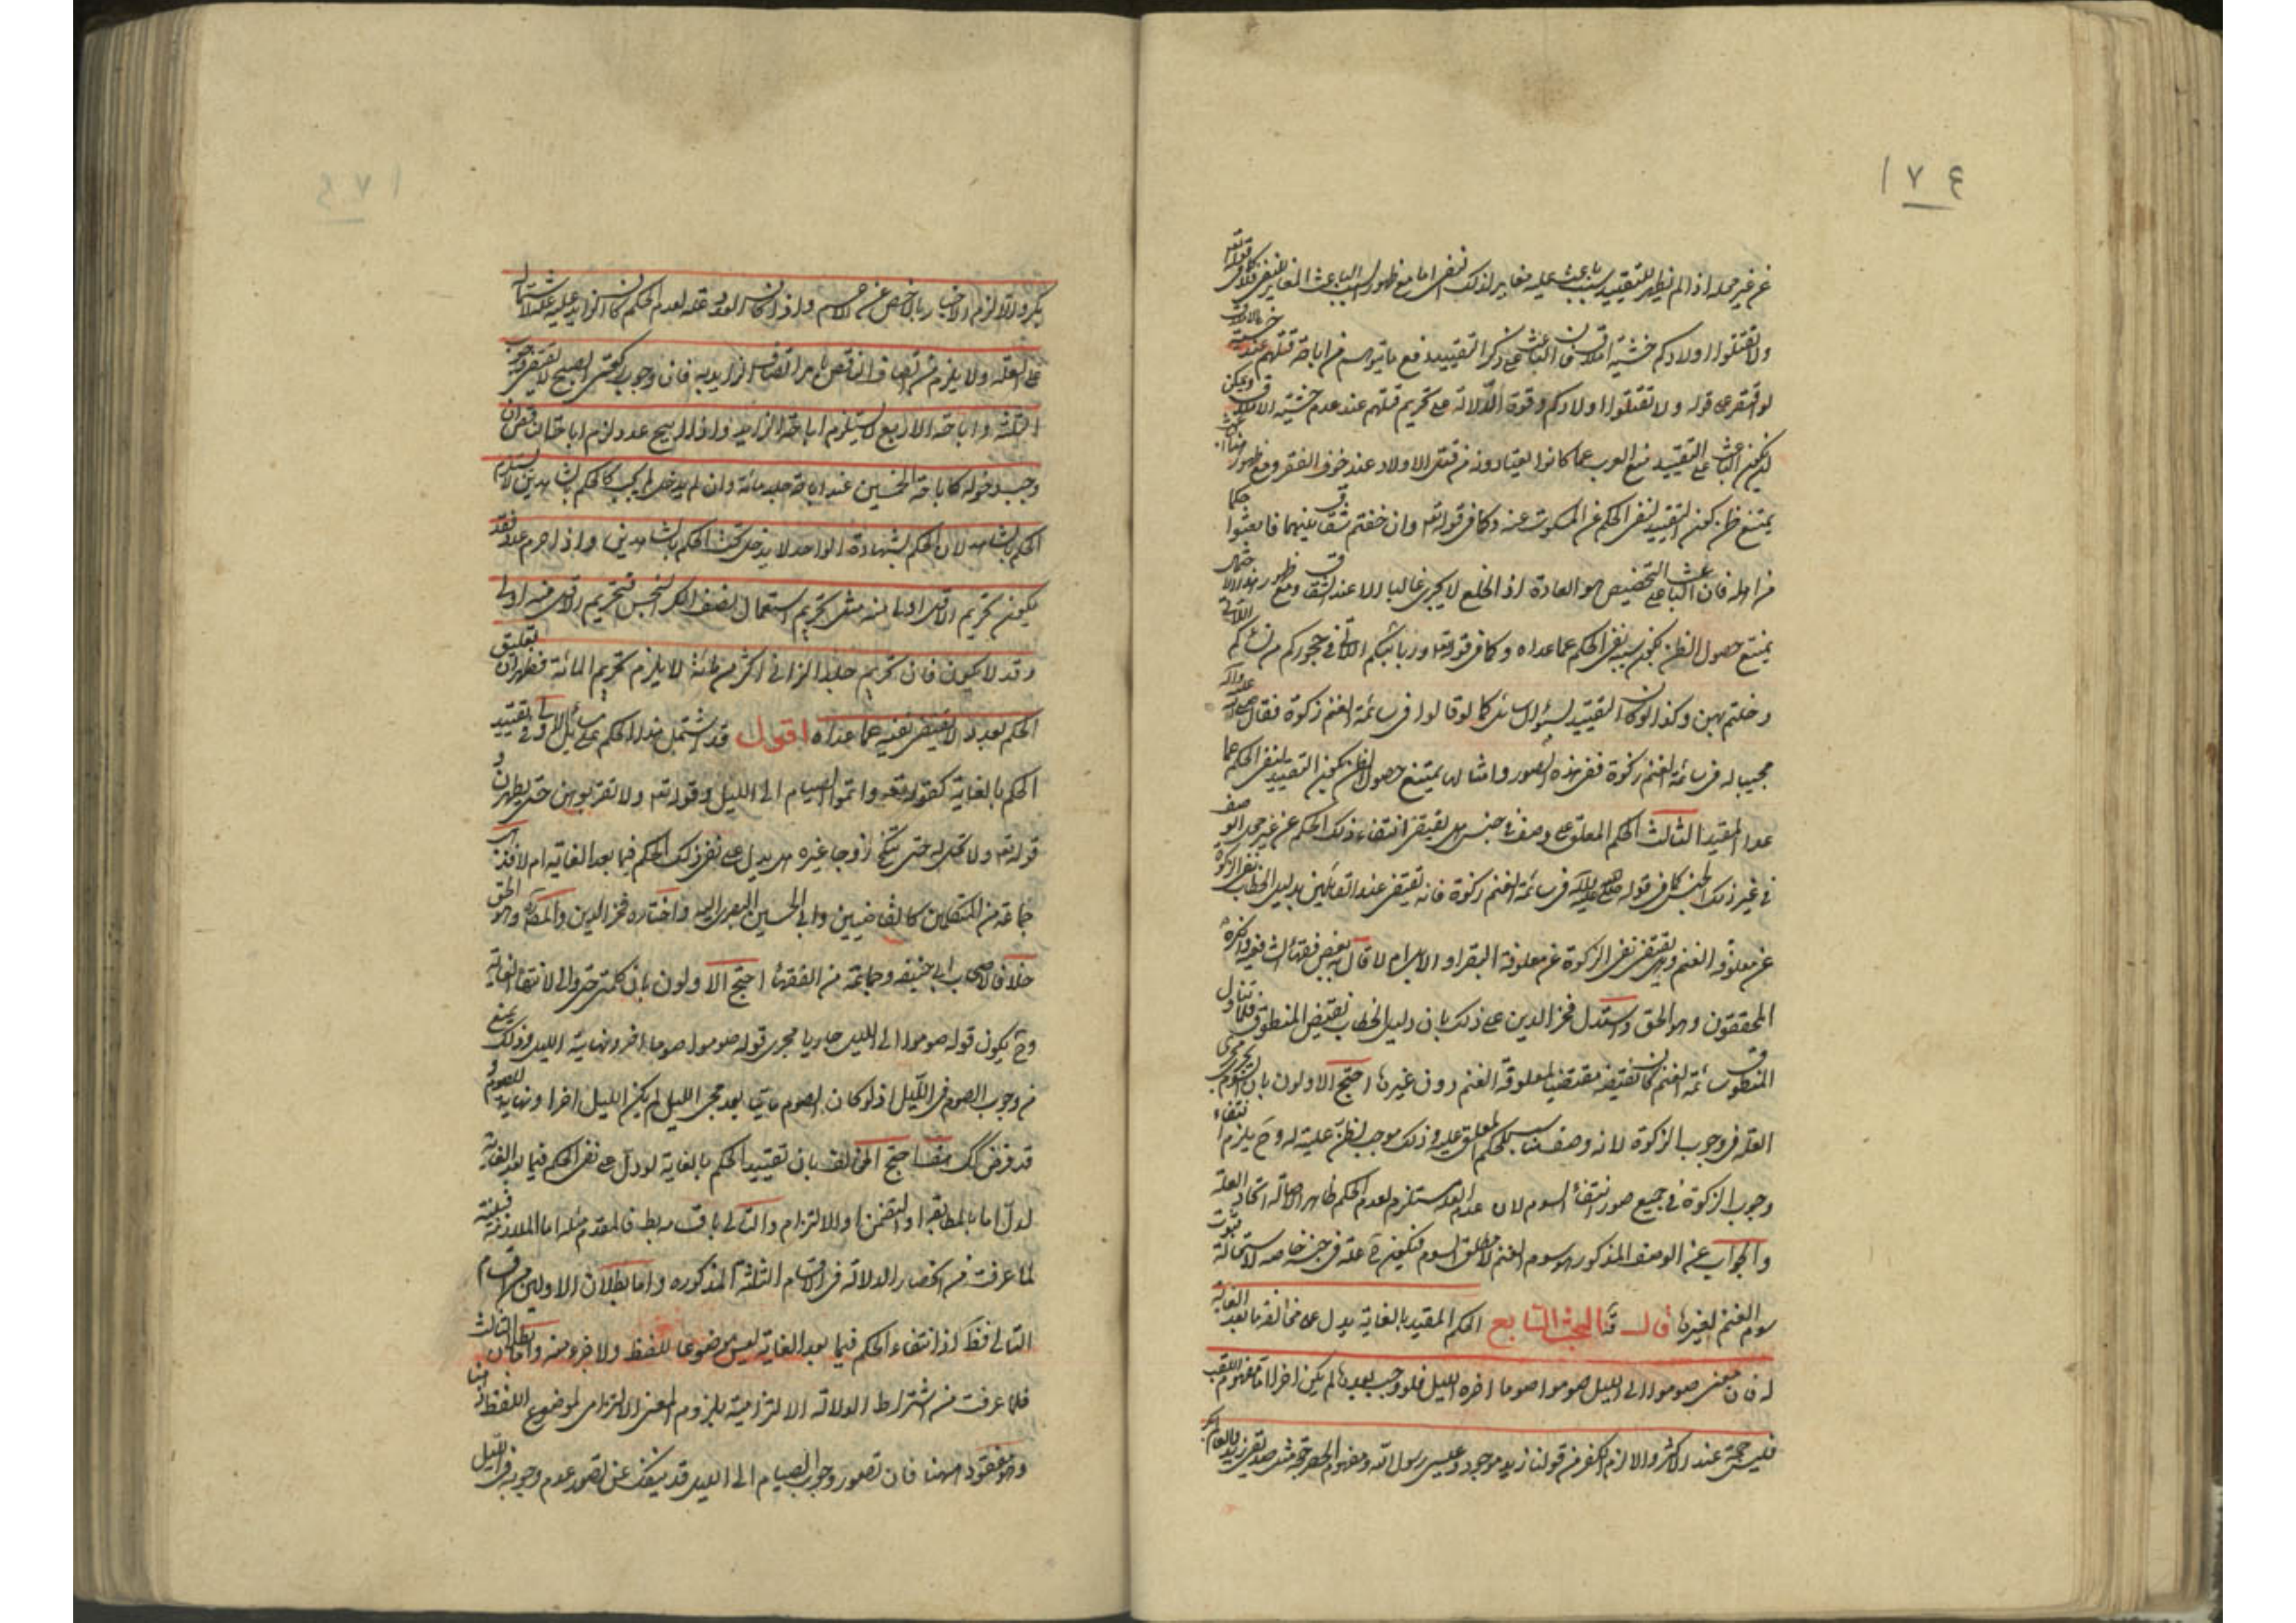 ١٧٤
عن غير محله اذا لم يظهر للتقييد سبب باعث عليه مغاير لذلك النفى اما مع ظهور السبب الباعث المغاير للنفى فلا كما فى قوله تعه
ولا تقتلوا اولادكم خشية املاق فان الباعث على ذكر التقييد دفع ما يتوهم من اباحة قتلهم عند خشية الاملاق
لو اقتصر على قوله ولا تقتلوا اولادكم وقوة الدلالة على تحريم قتلهم عند عدم خشية الاملاق ويمكن
ان يكون الباعث على التقييد منع العرب عما كانوا يعتادونه من قتل الاولاد عند خوف الفقر ومع ظهور
يمتنع ظن كون التقييد لنفى الحكم عن المسكوت عنه وكما فى قوله تعه وان خفتم شقاق بينهما فابعثوا حكما
من اهله فان الباعث على التخصيص هو العادة اذ الخلع لا يجرى غالبا الا عند الشقاق ومع ظهور هذا الاحتمال
يمتنع حصول الظن بكون سببه نفى الحكم عما عداه وكما فى قوله تعه وربائبكم اللاتى فى حجوركم من نسائكم اللاتى
دخلتم بهن وكذا لو كان التقييد لسؤال سائل كما لو قالوا فى سائمة الغنم زكوة فقال
مجيبا له فى سائمة الغنم زكوة ففى هذه الصور وامثالها يمتنع حصول الظن بكون التقييد لنفى الحكم عما
عدا المقيد الثالث الحكم المعلق على وصف فى جنس هل يقتضى انتفاء ذلك الحكم عن غير محل الوصف
فى غير ذلك الجنس كما فى قوله صلى الله عليه وآله فى سائمة الغنم زكوة فانه يقتضى عند القائلين بدليل الخطاب نفى الزكوة
عن معلوفة الغنم وهل يقتضى نفى الزكوة عن معلوفة البقر او الابل ام لا قال به بعض فقهاء الشافعية وانكره
المحققون وهو الحق واستدل فخر الدين على ذلك بان دليل الخطاب نقيض المنطوق فلما تناول
المنطوق سائمة الغنم كان نقيضه مقتضيا لمعلوفة الغنم دون غيرها احتج الاولون بان السوم يجرى مجرى
العلة فى وجوب الزكوة لانه وصف مناسب للحكم المعلق عليه وذلك موجب لظن علية له وح يلزم انتفاء
وجوب الزكوة فى جميع صور انتفاء السوم لان عدم العلة مستلزم لعدم الحكم ظاهرا لاصالة اتحاد العلة
والجواب ان الوصف المذكور هو سوم الغنم لا مطلق السوم فيكون علة فى جنس خاصة لاستحالة ثبوت
سوم الغنم لغيرها قال البحث السابع الحكم المقيد بالغاية يدل على مخالفة ما بعد الغاية
له فان معنى صوموا الى الليل صوموا صوما اخره الليل فلو وجب بعدها لم يكن اخرا اما مفهوم اللقب
فليس حجة عند الاكثر والا لزم الكفر من قولنا زيد موجود وعيسى رسول الله ومفهوم الحصر حجة مثل صديقى زيد والعالم
على العلة ولا يلزم من اتصاف الناقص بامر اتصاف الزايد به فان وجوب ركعتى الصبح لا يقتضى وجوب
الثلثة واباحة الاربع لا يستلزم اباحة الزايد واذا ابيح عدد لزم اباحة الناقص ان
وجب دخوله كاباحة الخمسين عند اباحة جلد مائة وان لم يدخل لم يجب كالحكم بالشاهدين لا يستلزم
الحكم بالشاهد لان الحكم بشهادة الواحد لا يدخل تحت الحكم بالشاهدين واذا حرم عدد فقد
يكون تحريم الاقل اولى منه مثل تحريم استعمال نصف الكر النجس فتحريم الاقل منه اولى
وقد لا يكون فان تحريم جلد الزانى اكثر من مائة لا يلزم تحريم المائة فظهر ان تعليق
الحكم بعدد لا يقتضى نفيه عما عداه اقول قد اشتمل هذا الحكم على مسائل الاولى تقييد
الحكم بالغاية كقوله تعه واتموا الصيام الى الليل وقوله تعه ولا تقربوهن حتى يطهرن و
قوله تعه ولا تحل له حتى تنكح زوجا غيره هل يدل على نفى ذلك الحكم فيما بعد الغاية ام لا
جماعة من المتكلمين كالقاضيين وابى الحسين البصرى اليه واختاره فخر الدين والمصنف وهو الحق
خلافا لاصحاب ابى حنيفه وجماعة من الفقهاء احتج الاولون بان كلمتى حتى والى لانتهاء الغاية
وح يكون قوله صوموا الى الليل جاريا مجرى قوله صوموا صوما اخره ونهايته الليل وذلك يمنع
من وجوب الصوم فى الليل اذ لو كان الصوم باقيا بعد مجئ الليل لم يكن الليل اخرا ونهاية للصوم و
قد فرض كك هف احتج المخالف بان تقييد الحكم بالغاية لو دل على نفى الحكم فيما بعد الغاية
لدل اما بالمطابقة او التضمن او الالتزام والتالى باقسامه بط فالمقدم مثله اما الملازمة
لما عرفت من انحصار الدلالة فى الاقسام الثلثة المذكوره واما بطلان الاولين من اقسام
التالى فظ اذ انتفاء الحكم فيما بعد الغاية ليس موضوعا للفظ ولا جزء منه واما بطلان الثالث
فلما عرفت من اشتراط الدلالة الالتزامية بلزوم المعنى الالتزامى لموضوع اللفظ
وهو مفقود ههنا فان تصور وجوب الصيام الى الليل قد ينفك عن تصور عدم وجوبه فى الليل